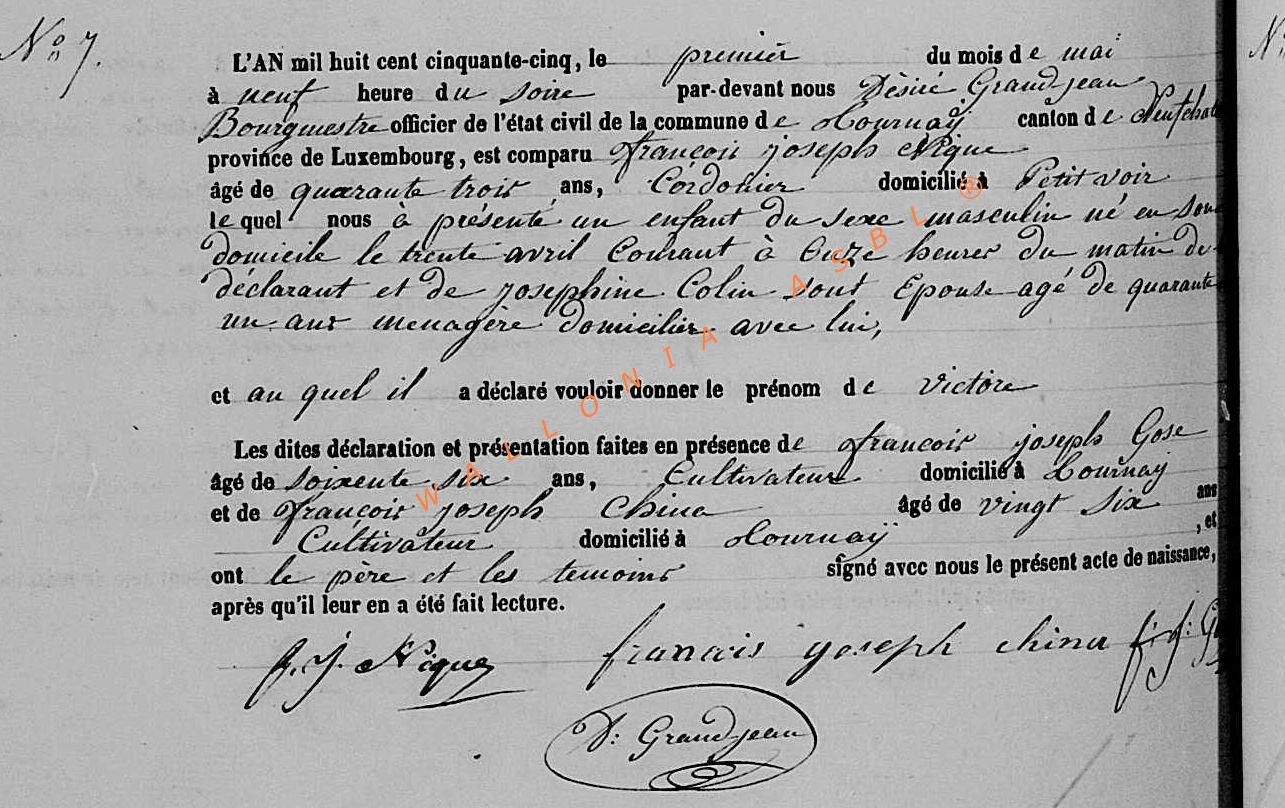 No 7.
L'AN mil huit cent cinquante-cinq, le premier du mois de mai
à neuf heure du soire par-devant nous Désiré Grandjean
Bourgmestre officier de l'état civil de la commune de Tournay canton de Neufchat
province de Luxembourg, est comparu françois joseph Nique
âgé de quarante trois ans, Cordonier domicilié à Petitvoir
le quel nous à présenté un enfant du sexe masculin né en son
domicile le trente avril Courant à Onze heures du matin de
déclarant et de josephine Colin sont Epouse agé de quarante
un ans menagère domicilier avec lui,
et au quel il a déclaré vouloir donner le prénom de Victore
Les dites déclaration et présentation faites en présence de françois joseph Gose
âgé de soixente six ans, Cultivateur domicilié à Tournay
et de françois joseph China âgé de vingt six ans
Cultivateur domicilié à Tournaÿ , et
ont le père et les temoins signé avec nous le présent acte de naissance,
après qu'il leur en a été fait lecture.
f. J. Nique francois yoseph china f: j: G
D: Grandjean
WALLONIA ASBL ®